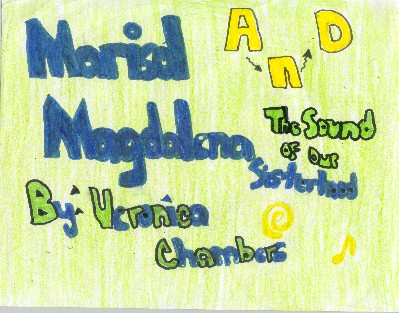 Marisol AnD
Magdalena The Sound
of our
Sisterhood
By: Veronica
Chambers